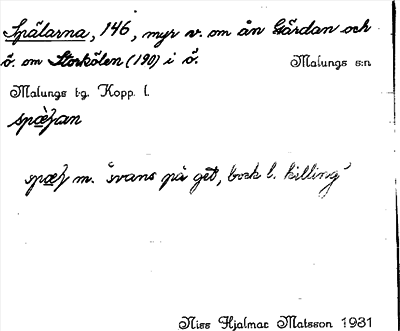 Spälarna, 146, myr v. om ån Gärdan och
ö. om Storkölen (190) i ö. Malungs s:n
Malungs tg. Kopp. l.
spæ̀ɮan
spæɮ m. 'svans på get, bock l. killing'
Niss Hjalmar Matsson 1931